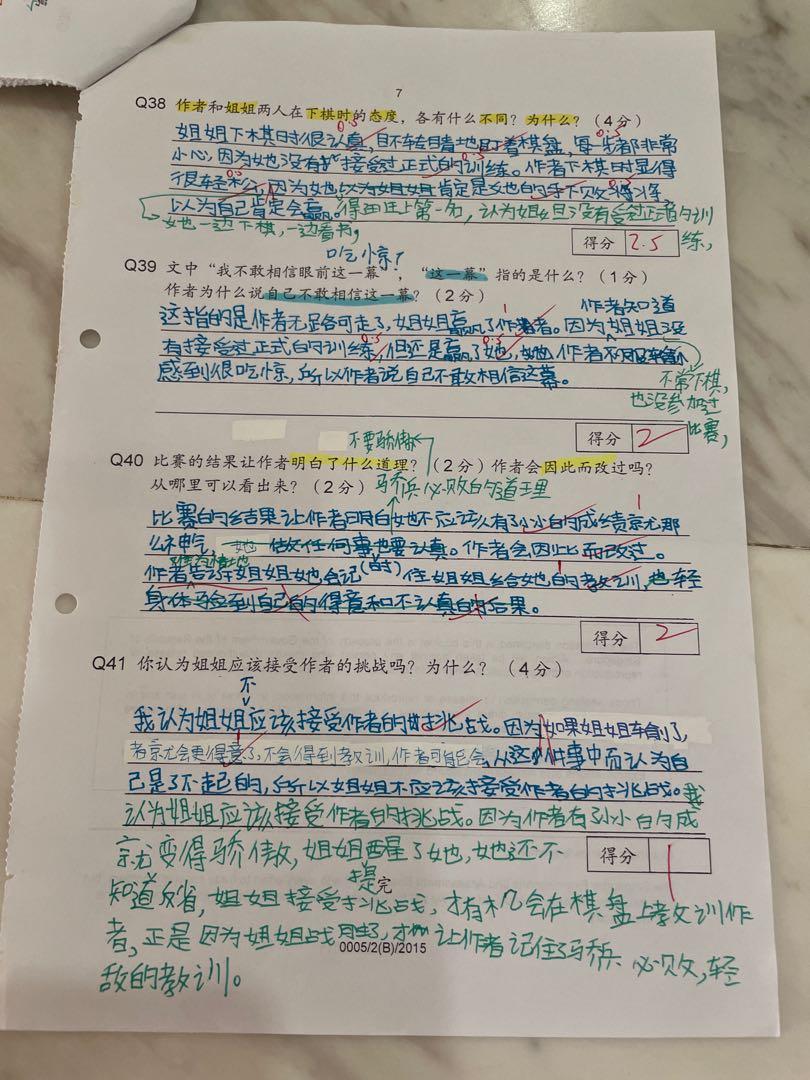 7
Q38 作者和姐姐两人在下棋时的态度，各有什么不同？为什么？（4分）
姐姐下棋时很认真，目不转睛地盯着棋盘，每一步都非常
小心，因为她没有接受过正式的训练。作者下棋时显得
很轻松，因为她以为姐姐肯定是她的手下败将
以为自己肯定会赢。得过班上第一名，认为姐姐没有受过正式的训
她一边下棋，一边看书，
练，
得分 2.5
吃惊？
Q39 文中“我不敢相信眼前这一幕”，“这一幕”指的是什么？（1分）
作者为什么说自己不敢相信这一幕？（2分）
作者知道
这指的是作者无路可走了，姐姐赢了作者。因为姐姐没
有接受过正式的训练，但还是赢了她，作者
感到很吃惊，所以作者说自己不敢相信这幕。
不常下棋，
也没参加过
比赛，
得分 2
不要骄傲
Q40 比赛的结果让作者明白了什么道理？（2分）作者会因此而改过吗？
从哪里可以看出来？（2分）
骄兵必败的道理
比赛的结果让作者明白她不应该有了小小的成绩就那
么神气，她做任何事也要认真。作者会因此而改过。
作者告诉姐姐她会记住姐姐给她的教训，也
身体验到自己的得意和不认真的后果。
得分 2
Q41 你认为姐姐应该接受作者的挑战吗？为什么？（4分）
不
我认为姐姐应该接受作者的挑战。因为如果姐姐输了，
者就会更得意了，不会得到教训，作者可能会从这件事中而认为自
己是了不起的，所以姐姐不应该接受作者的挑战。我
认为姐姐应该接受作者的挑战。因为作者有了小小的成
就变得骄傲，姐姐提醒了她，她还不
得分 1
知道反省，姐姐接受挑战，才有机会在棋盘上教训作
者，正是因为姐姐战胜了，才让作者记住了骄兵必败，轻
0005/2(B)/2015
敌的教训。